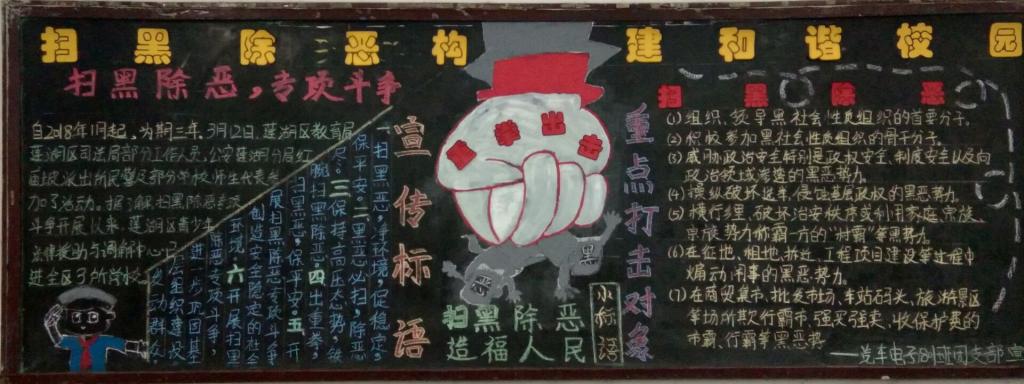 扫黑除恶构建和谐校园
扫黑除恶,专攻斗争
自2018年1月起,为期三年。3月12日,莲湖区教育局
莲湖区司法局部分工作人员,公安莲湖分局红
庙坡派出所民警及部分学校师生代表参
加了活动。据了解扫黑除恶专项
斗争开展以来,莲湖区青少年
法律援助与调解中心已
进全区3所学校。
宣传标语
一.扫黑恶,净环境,促稳定,
保平安。二.黑恶必扫,除恶
尽。三.保持高压态势,铁
腕扫黑除恶。四.出重拳,
扫黑恶,保平安。五.开
展扫黑除恶专项斗争
创造安全稳定的社会
环境。六.开展扫黑
除恶专项斗争,
进一步巩固基
层组织建设
发动群众
重拳出击
黑
恶
扫黑除恶
造福人民
小标语
重点打击对象
扫黑除恶
(1)组织、领导黑社会性质组织的首要分子。
(2)积极参加黑社会性质组织的骨干分子。
(3)威胁政治安全特别是政权安全、制度安全以及向
政治领域渗透的黑恶势力。
(4)操纵破坏选举,侵蚀基层政权的黑恶势力。
(5)横行乡里,破坏治安秩序或利用家庭、宗族、
宗族势力称霸一方的“村霸”等黑势力。
(6)在征地、租地、拆迁、工程项目建设等过程中
煽动闹事的黑恶势力。
(7)在商贸集市、批发市场、车站码头、旅游景区
等场所欺行霸市、强买强卖、收保护费的
市霸、行霸等黑恶势
——汽车电子团支部宣